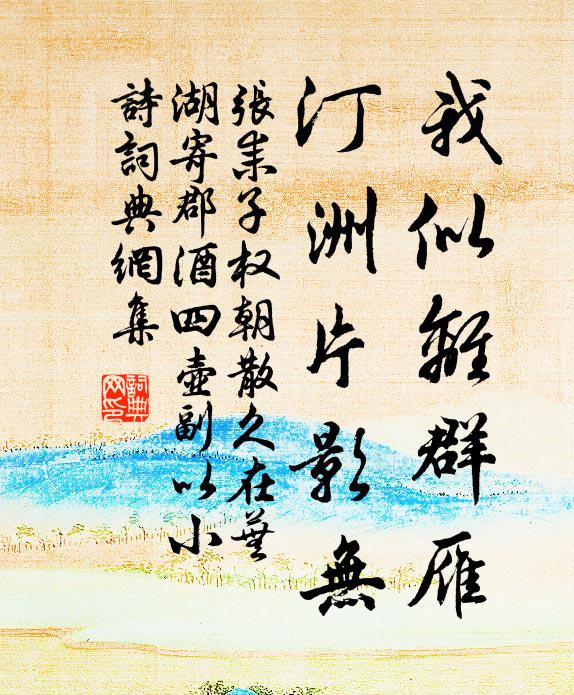 我似離群雁
汀洲片影無
張朱子权朝散久在蕪
湖寄郡酒四壺副以小
詩詞典網集
詞典
网印